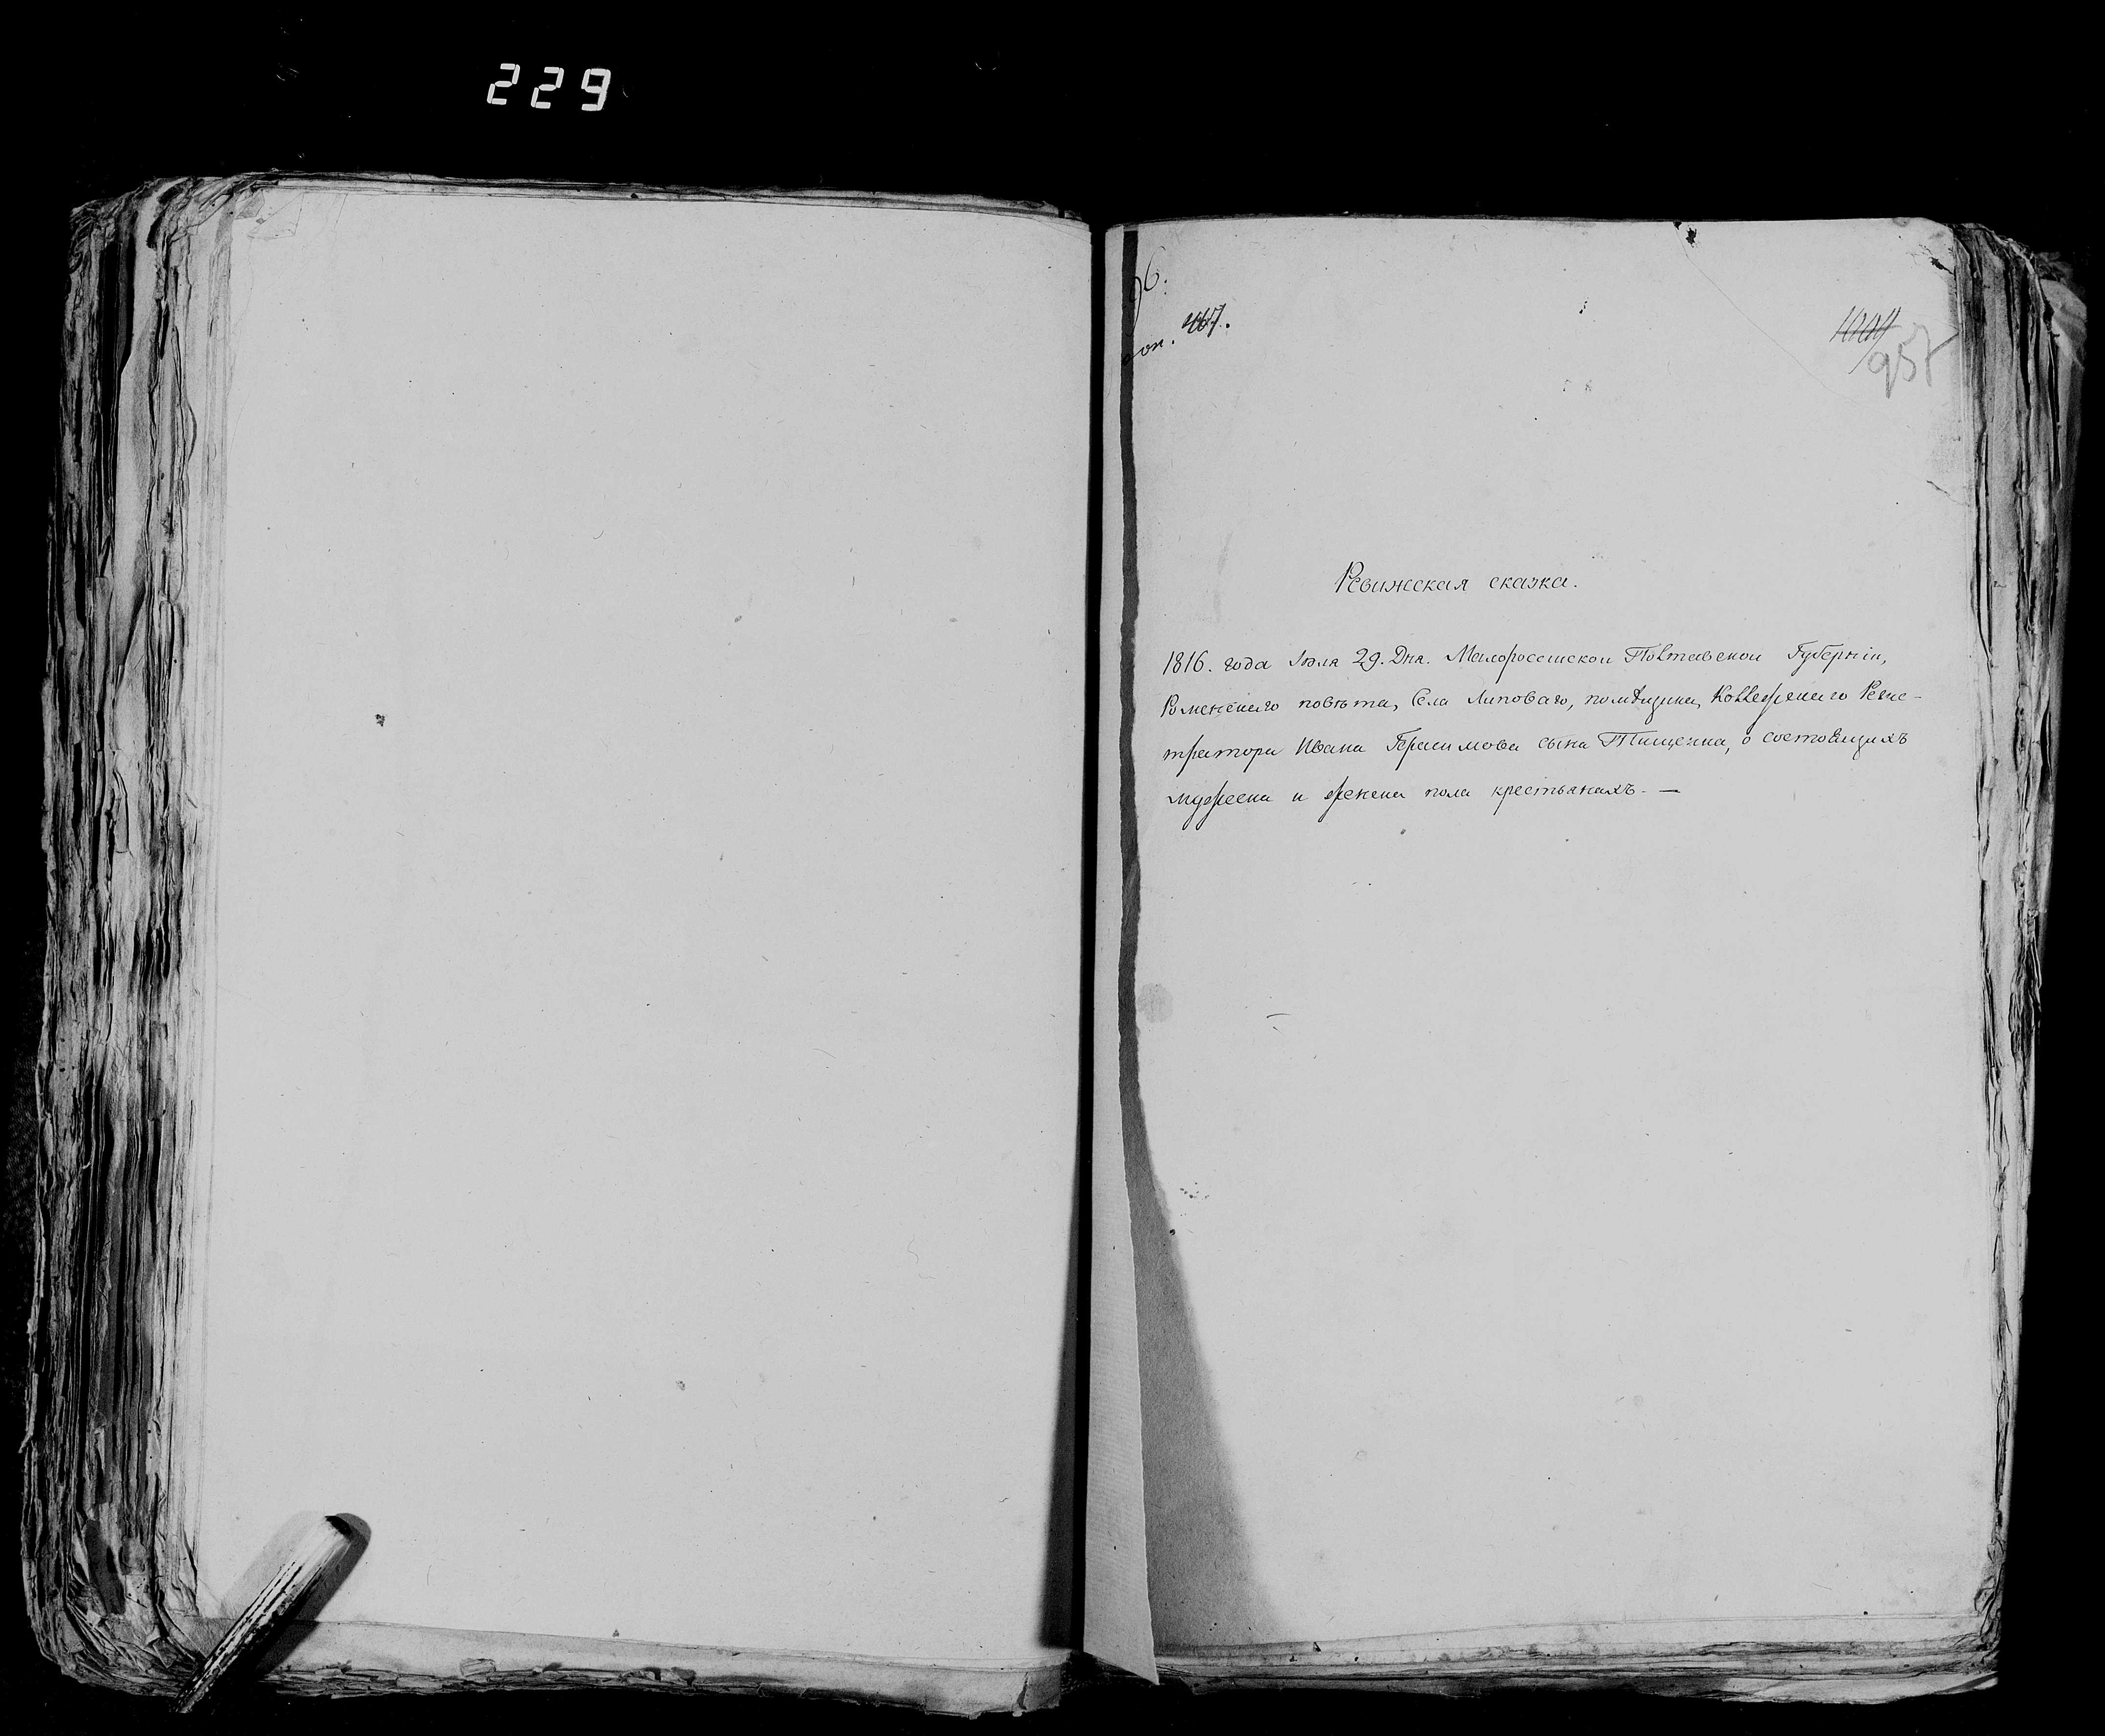 229
96.
467.
957
Ревижская сказка.
1816. года Июля 29. Дня. Малороссiиской Полтавской Губернiи,
Роменскаго повѣта, Села Липоваго, помѣщика, Коллежскаго Реги-
тратора Ивана Герасимова сына Тищенка, о состоящихъ
мужеска и женска пола крестьянахъ. —